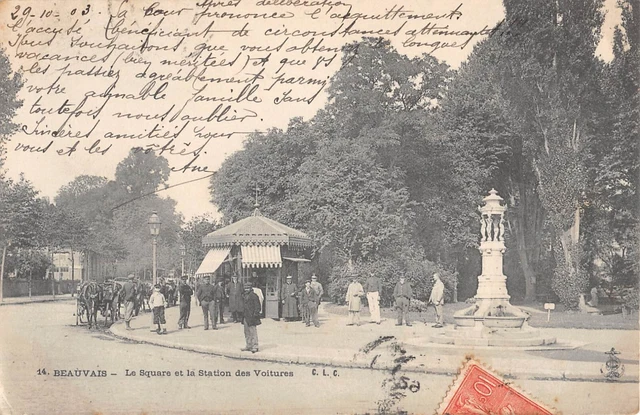 29-10-03. La Cour prononce l'acquittement.
Après délibération
l'accusé bénéficiant de circonstances atténuantes
Nous souhaitons, que vous obteniez longues
vacances (bien méritées) et que
les passiez agréablement parmi
votre aimable famille sans
toutefois nous oublier.
Sincères amitiés pour
vous et les vôtres
14. BEAUVAIS – Le Square et la Station des Voitures C. L. C.
10